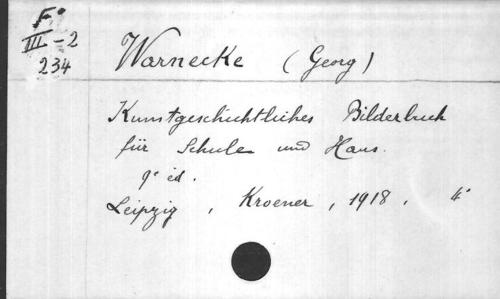 F°
III-2
234
Warnecke (Georg)
Kunstgeschichtliches Bilderbuch
für Schule und Haus.
9e éd.
Leipzig, Kroener, 1918, 4°